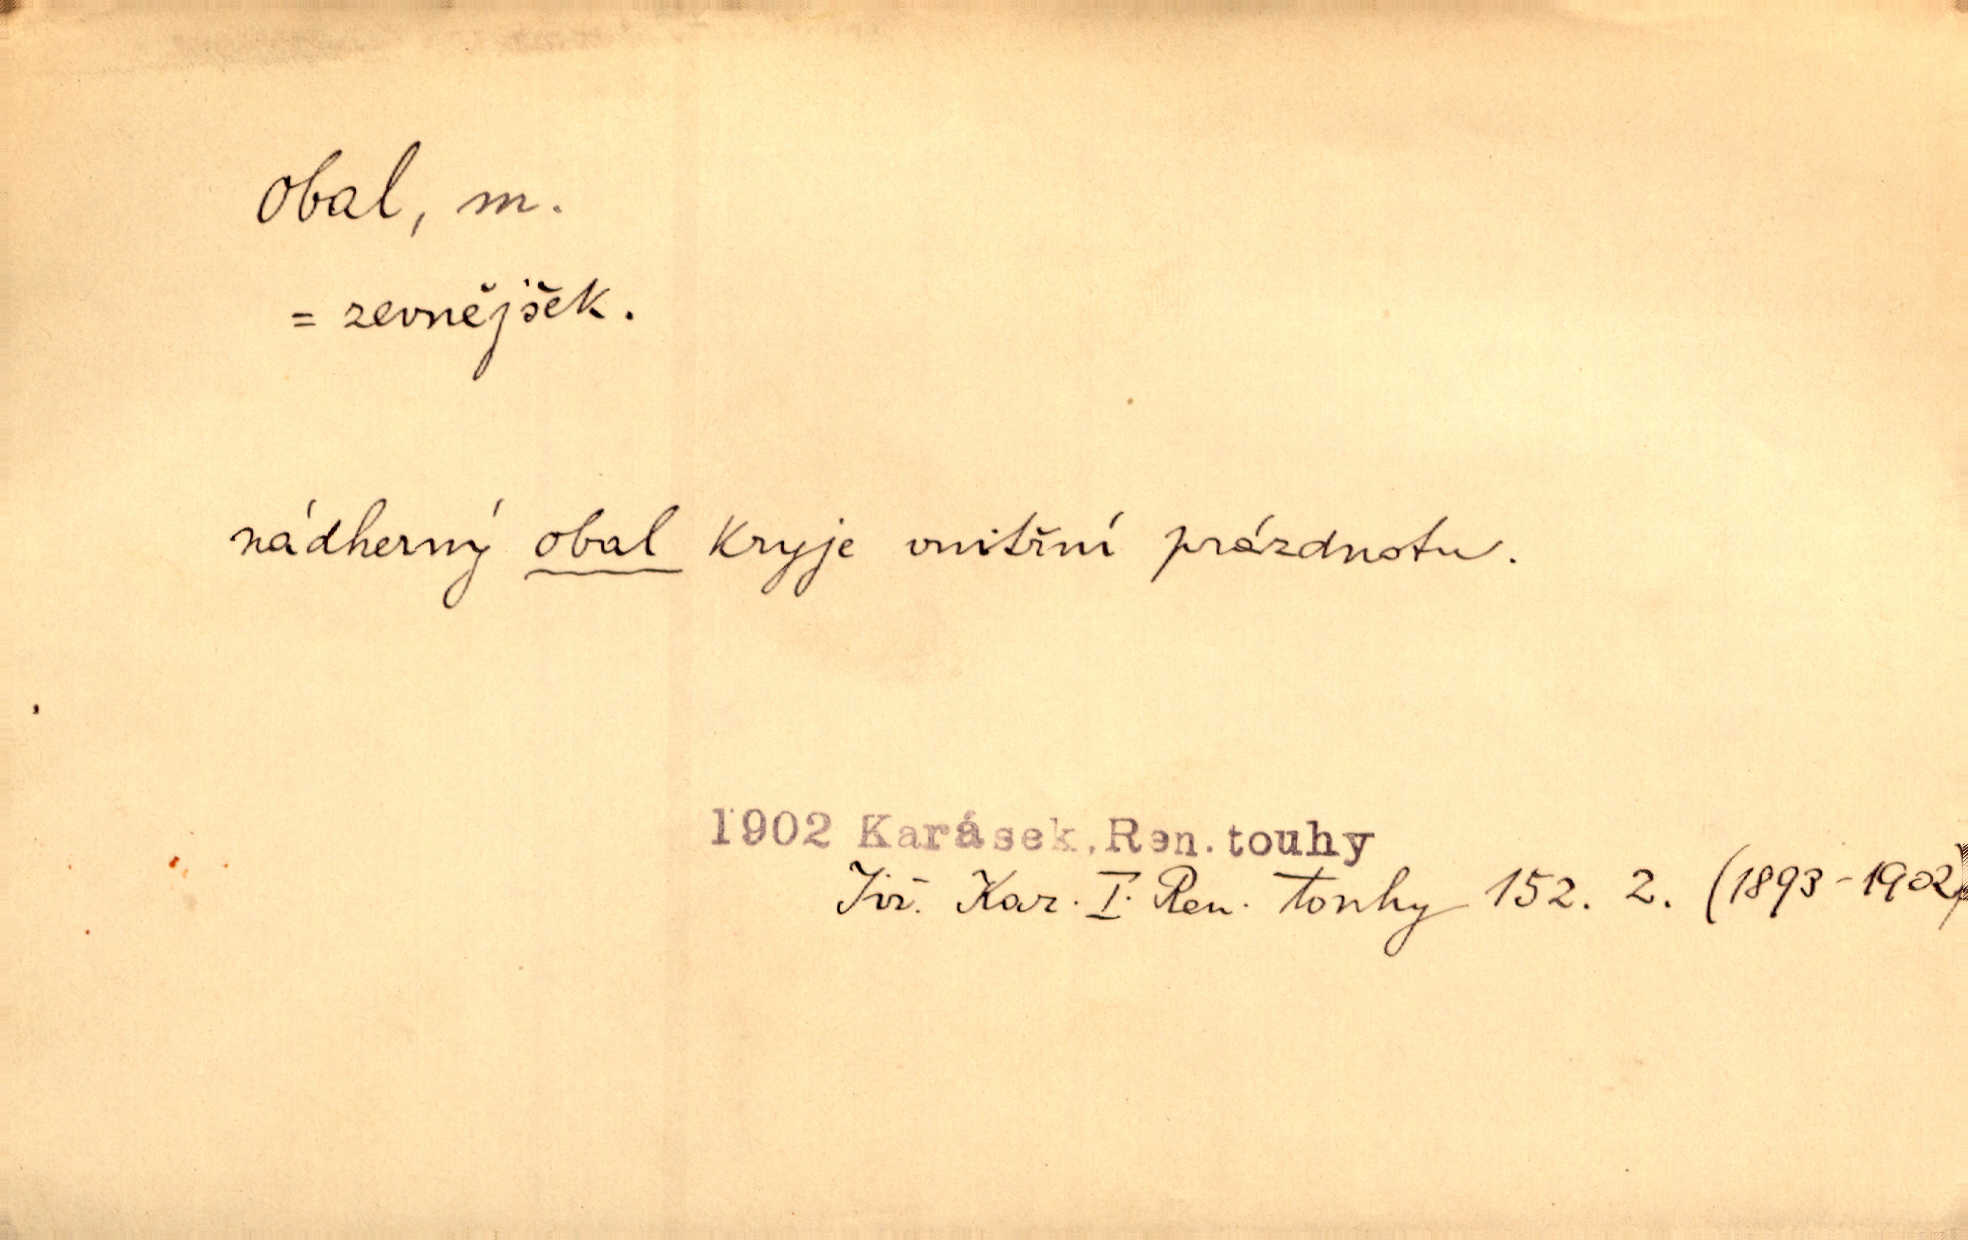 obal, m.
= zevnějšek.
nádherný obal kryje vnitřní prázdnotu.
1902 Karásek, Ren. touhy
Jiř. Kar. I. Ren. touhy 152. 2. (1893-1902)